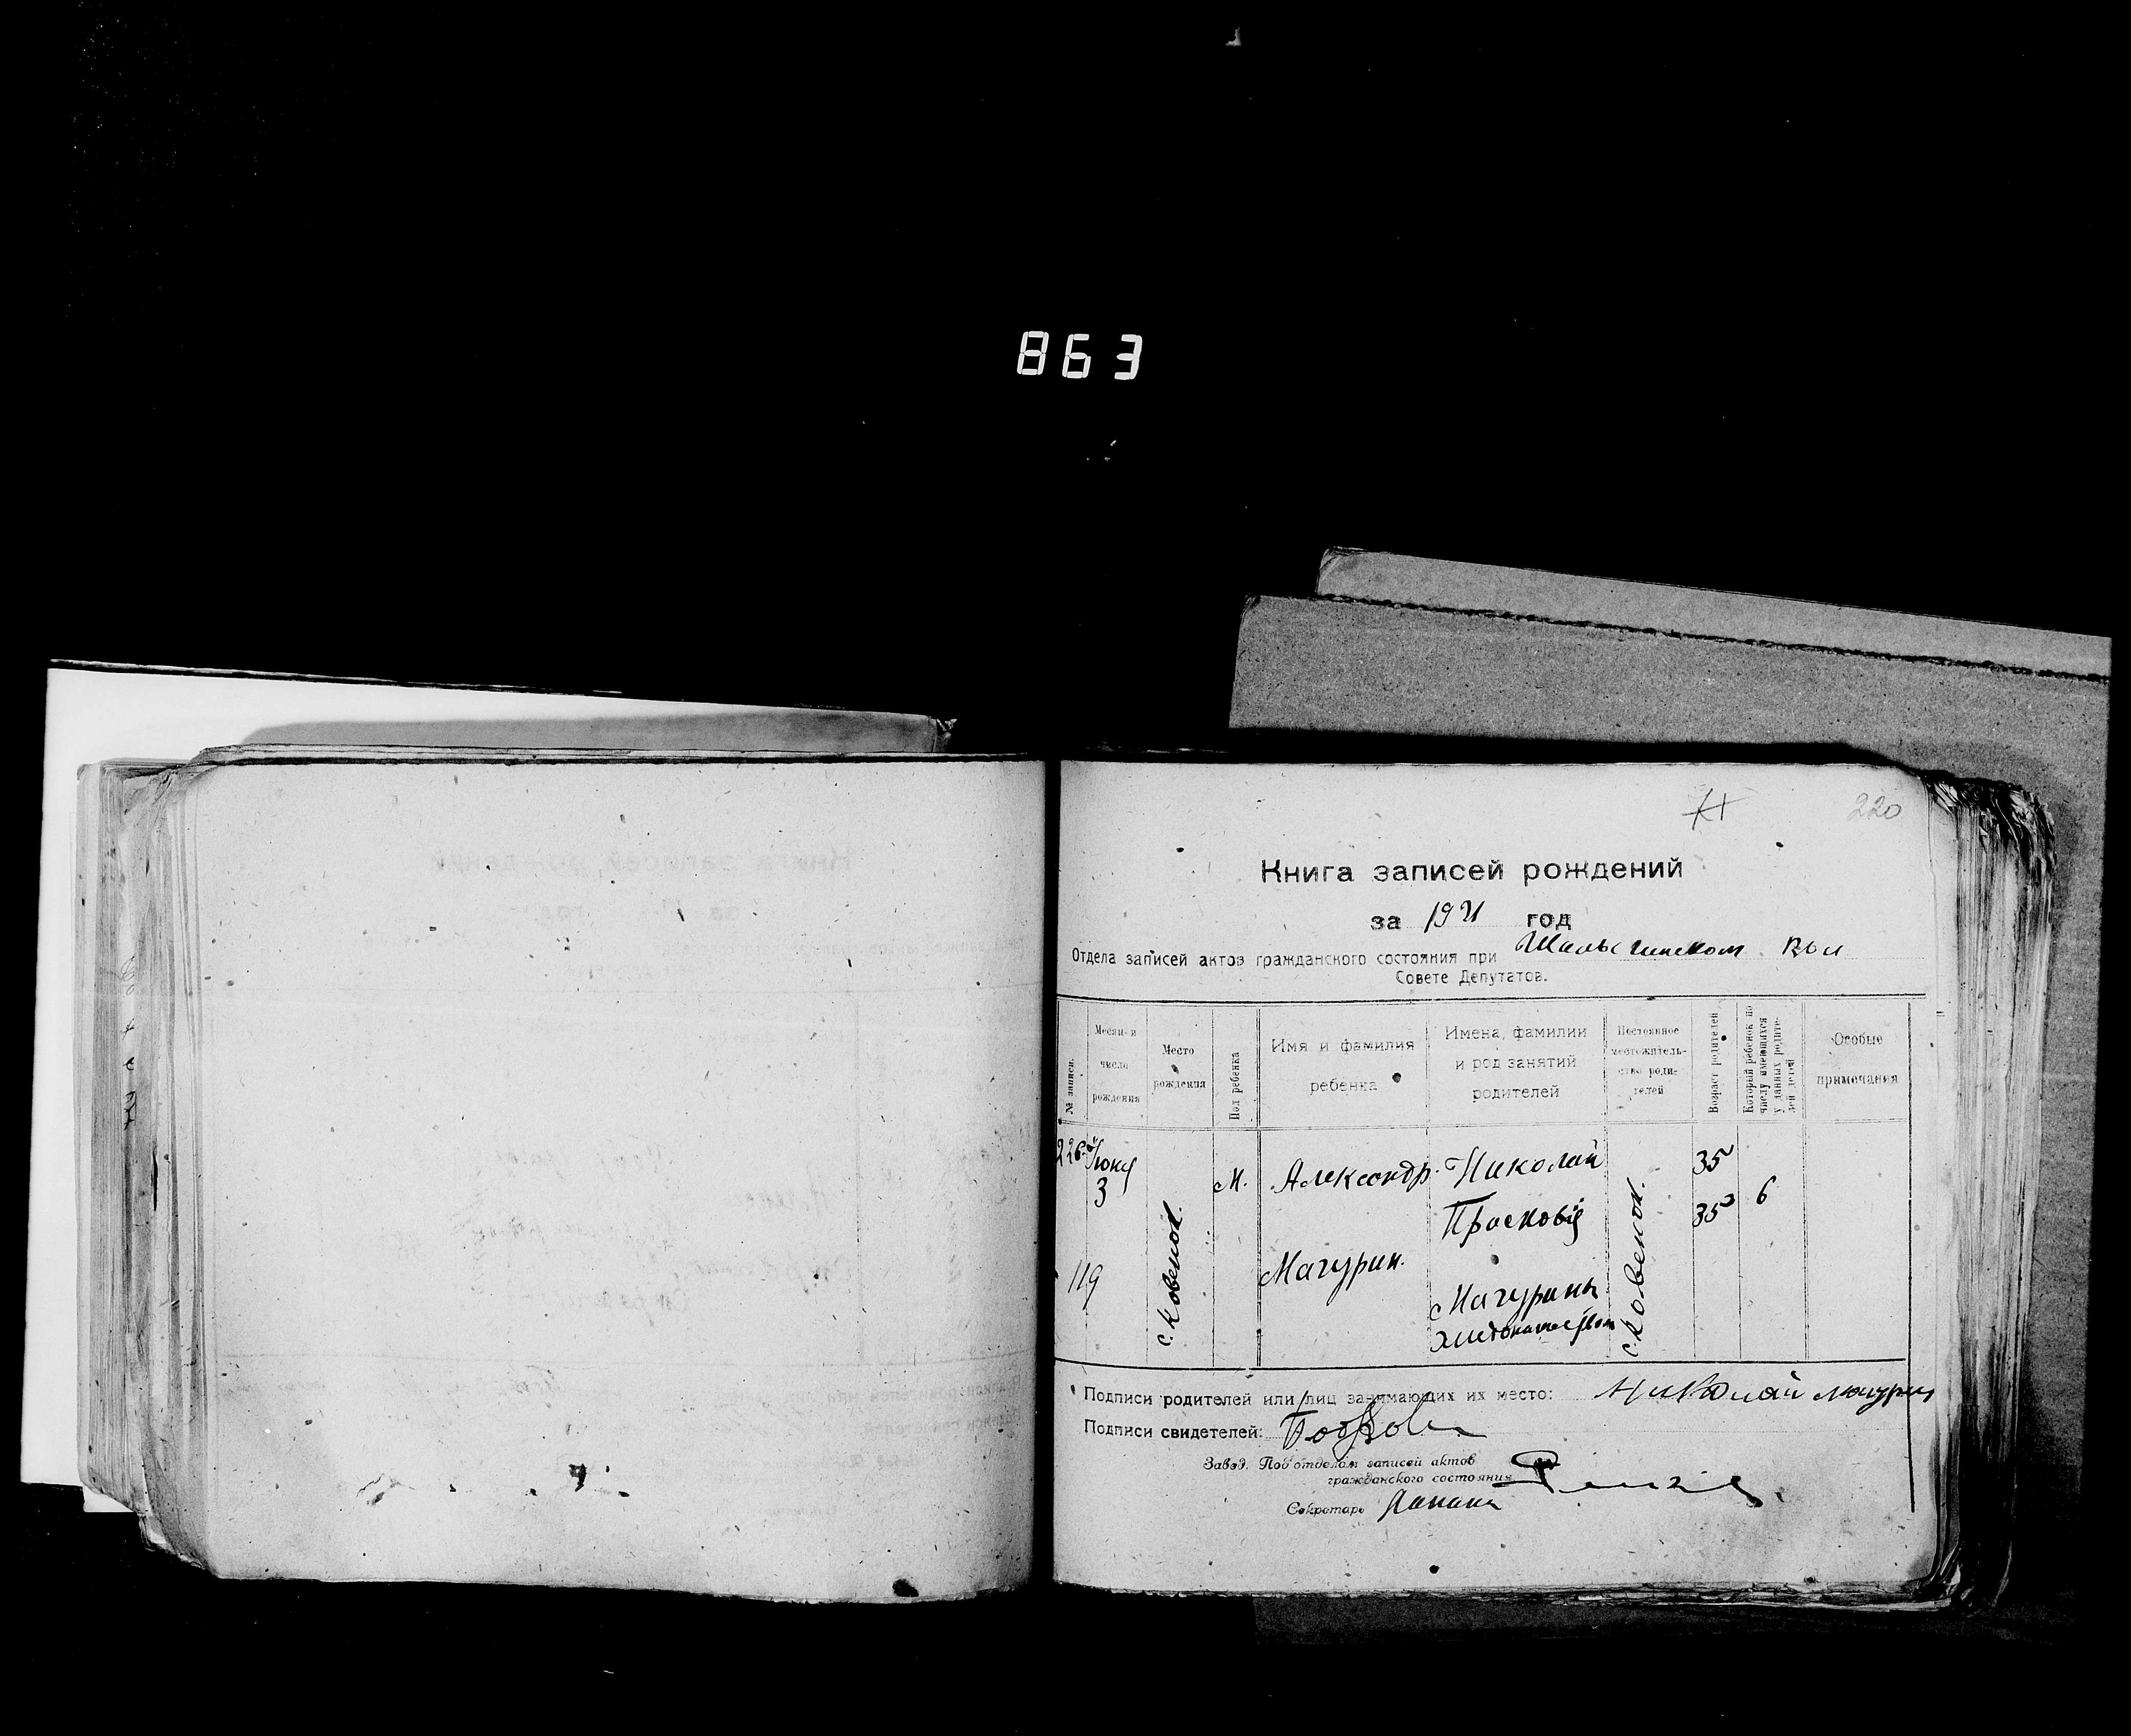 863
220
Книга записей рождений
за 1921 год
Отдела записей актов гражданского состояния при Шалыгинском Вол
Совете Депутатов.
№ записи.
Месяц и число рождения
Место рождения
Пол ребенка
Имя и фамилия ребенка
Имена, фамилии и род занятий родителей
Постоянное местожительство родителей
Возраст родителей
Который ребенок по числу имеющихся у данных родителей детей
Особые примечания
226
3
119
с. Ковенок.
М.
Александр
Мачурин.
Николай
Прасковія
Мачурины
с. Ковенок.
35
35
6
Подписи родителей или лиц занимающих их место: Николай Мачурин
Подписи свидетелей:
Завед. Подотделом записей актов
гражданского состояния
Секретарь